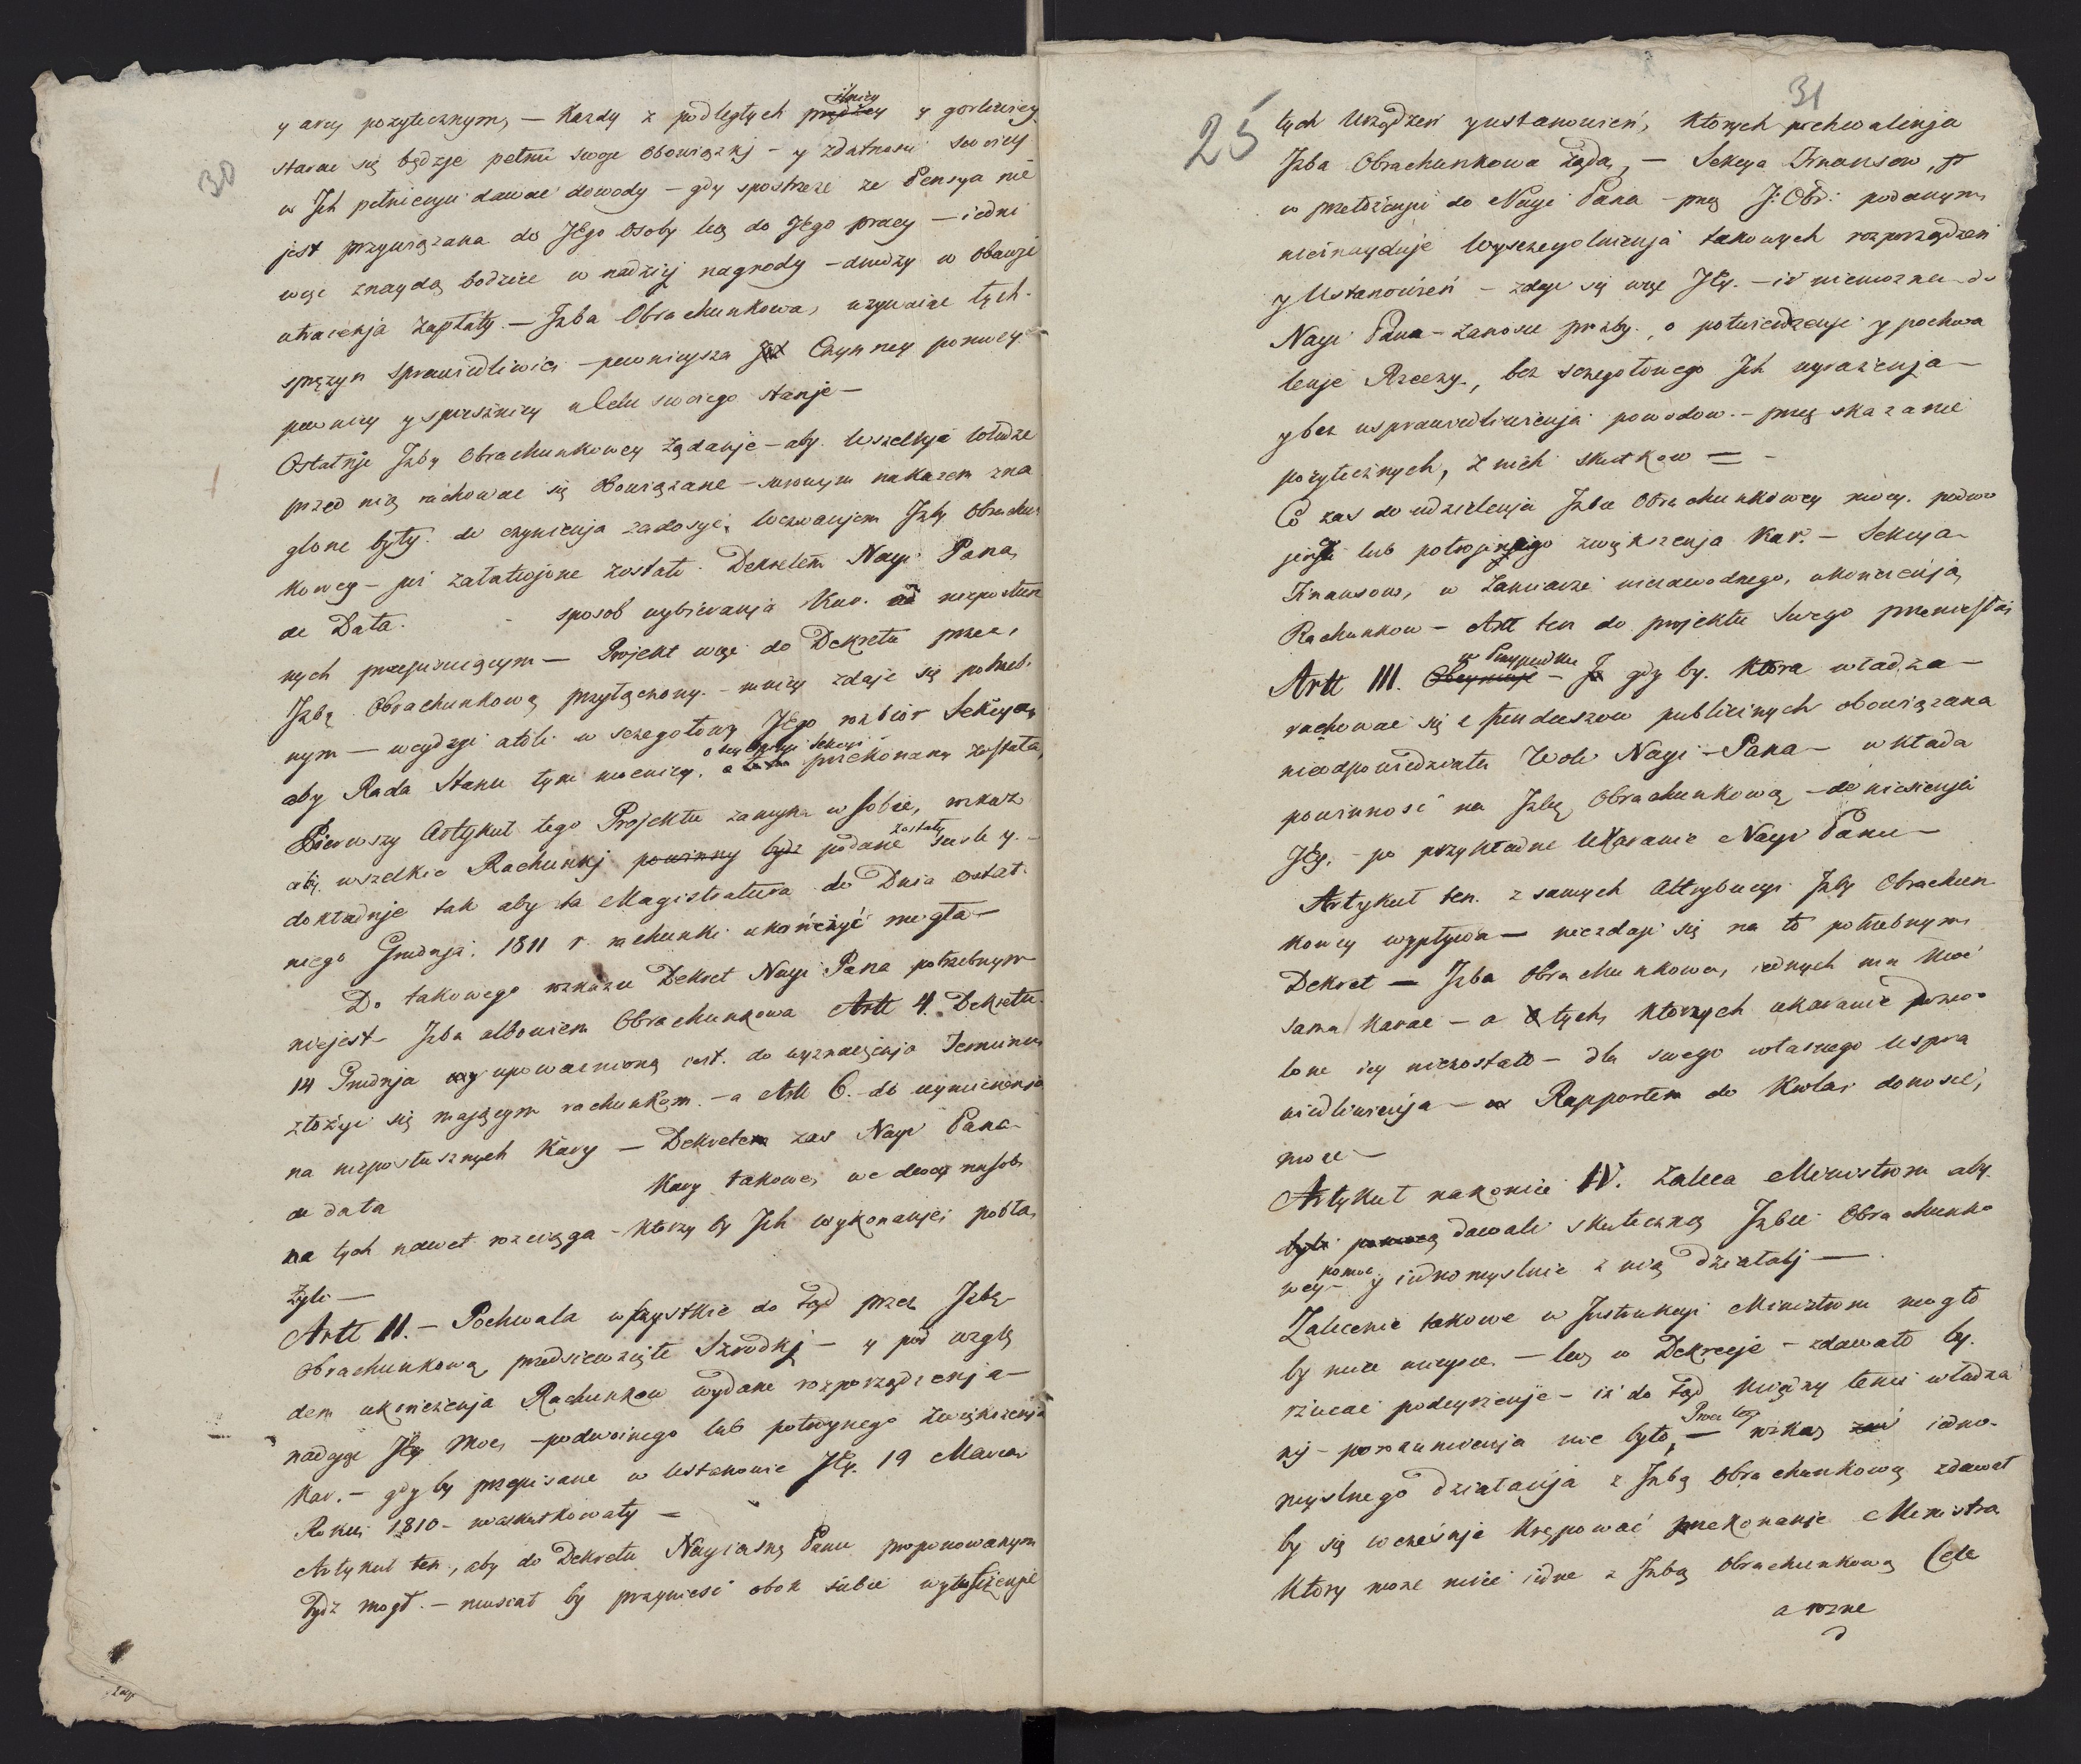 30
y arcy pozytecznym, — Kazdy z podległych pilniey y gorliwiey
starac się będzje pełnic swoje obowiązkj — y zdatnosci swoiey
w Jch pełnienju dawac dowody — gdy spostrzeze ze Pensya nie
jest przywiązana do Jego Osoby lecz do Jego pracy — iedni
więc znaydą bodzice w nadziej nagrody — drudzy w obawje
utracenja zapłaty. — Jzba Obrachunkowa, uzywaiąc tych
spręzyn sprawiedliwiey — pewnieysza Jest Czynney pomocy
pewniey y spieszniey u Celu swoiego stanje —
Ostatnje Jzby Obrachunkowey żądanje — aby wszelkje władze
przed nią rachowac się obowiązane — surowym nakazem zna
glone były do czynienja zadosyć, wezwanjem Jzby Obrachun
kowey — juz załatwjone zostało Dekretem Nayj: Pana
de Data. sposob wybieranja Kar. od niepostusz
nych przepisuiącym — Projekt więc do Dekretu przez
Jzbę Obrachunkową przyłączony. — mniey zdaje się potrzeb
nym — weydzje atoli w szczegołowy Jego rozbior Sekcya,
aby Rada Stanu tym mocniey, o tey Opinji Sekcyi przekonaną została,
Pierwszy Artykuł tego Projektu zamyka w sobie, rozkaz
aby wszelkie Rachunkj powinny bydz podane zostały
dokładnje tak aby ta Magistratura do Dnia ostat
niego Grudnja. 1811 r rachunki ukończyć mogła —
Do takowego rozkazu Dekret Nayj: Pana potrzebnym
niejest — Jzba albowiem Obrachunkowa Artt 4. Dekretu
14 Grudnja upowaznioną iest. do wyznaczenja Terminu
złożyć się maiącym rachunkom. — a Artt 6. do wymierzenja
na niepostusznych Kary — Dekretem zas Nayj: Pana
de data Kary takowe, we dwoy nasob
na tych nawet rozciąga — ktorzy by Jch wykonanje pobła
żyli —
Artt II. — Pochwala wszystkie do tąd przez Jzbę
Obrachunkową przedsiewzięte Szrodkj — y pod wzglę
dem ukonczenja Rachunkow wydane rozporządzenja —
nadaje Jey Moc, — podwoinego lub potroynego zwiększenja
Kar. — gdy by przepisane w Ustanowie Jey. 19 Marca
Roku 1810 — nieskutkowały —
Artykuł ten, aby do Dekretu Nayiasn: Panu proponowanym
bydz mogł. — musiał by przyniesć obok siebie wytłuszczenje
31
25
tych Urządzeń y ustanowień, ktorych pochwalenja
Jzba Obrachunkowa żąda, — Sekcya Finansow,
w przełożenju do Nayj: Pana — przez J: Obr: podanym,
nieznayduje wyszczegolnienja takowych rozporządzeń
y Ustanowień — zdaje się więc Jey. — iż niemozna do
Nayj: Pana — zanosic proźby, o potwierdzenje y pochwa
lenje Rzeczy, bez szczegołowego Jch wyrazenja —
y bez usprawiedliwienja powodow. — przez skazanie
pożytecznych, z nich skutkow —
Co zas do udzielenja Jzbie Obrachunkowey mocy podwo
lub potrojnego zwiększenja Kar. — Sekcya
Finansow, w zamiarze niezawodnego, ukonczenja
Rachunkow — Artt ten do projektu swego przeniesła
Artt III. Obeymuje w Przypadku — gdy by. Ktora władza —
rachowac się z funduszow publicznych obowiązana
nieodpowiedziała Woli Nayj: — Pana — wkłada
powinnosć na Jzbę Obrachunkową — doniesienja
Jey. — po przykładne Ukaranie Nayj: Panu —
Artykuł ten. z samych Attrybucyi Jzby Obrachun
kowey wypływa — niezdaje się na to potrzebnym
Dekret — Jzba Obrachunkowa, iednych ma Moc
sama Karac — a tych, ktorych ukaranie pozwo
lone iey niezostało — dla swego własnego uspra
wiedliwienja — Rapportem do Krola donosic,
moze —
Artykuł nakoniec IV. zaleca Ministrom aby
byli pomocą dawali skuteczną Jzbie Obrachunko
wey pomoc — y iednomyslnie z nią działalj —
Zalecenie takowe w Jnstrukcyi Ministrom mogło
by miec mieysce — lecz w Dekrecje — zdawało by.
rzucac podeyrzenje — iz do tąd Między temi władza
mj — porozumienja nie było, — Prócz tego rozkaz iedno
myslnego działanja z Jzbą Obrachunkową zdawał
by się wcześnje Krępować przekonanje Ministra
Ktory moze miec iedne z Jzbą Obrachunkową Cele
a rozne